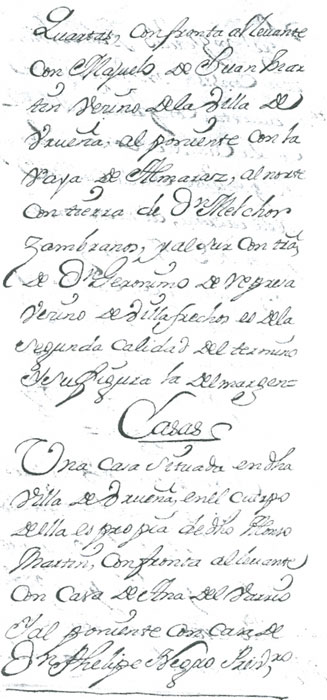 Quartas, Confronta al levante
con Majuelo de Juan Mar
tin Vecino de la Villa de
Vrueña, al poniente con la
Raya de Almaraz, al norte
con tierra de Dn Melchor
Zambranos, y al sur con trã
de Dn Geronimo de
Vecino de Villafrechos es de la
segunda Calidad del termino
y su figura la del margen=
Casas
Una Casa situada en dha
Villa de Vrueña, en el cuerpo
de ella es propia de dho Alonso
Martin, Confronta al levante
con Casa de Ana del Barrio
y al poniente con casa de
Dn Phelipe Negro